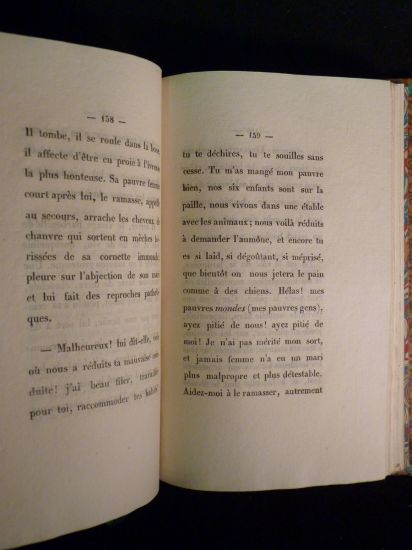 — 158 —
Il tombe, il se roule dans la boue,
il affecte d'être en proie à l'ivresse
la plus honteuse. Sa pauvre femme
court après lui, le ramasse, appelle
au secours, arrache les cheveux de
chanvre qui sortent en mèches hé-
rissées de sa cornette immonde,
pleure sur l'abjection de son mari
et lui fait des reproches pathéti-
ques.
— Malheureux! lui dit-elle, vois
où nous a réduits ta mauvaise con-
duite! j'ai beau filer, travailler
pour toi, raccommoder tes habits
— 159 —
tu te déchires, tu te souilles sans
cesse. Tu m'as mangé mon pauvre
bien, nos six enfants sont sur la
paille, nous vivons dans une étable
avec les animaux; nous voilà réduits
à demander l'aumône, et encore tu
es si laid, si dégoûtant, si méprisé,
que bientôt on nous jetera le pain
comme à des chiens. Hélas! mes
pauvres mondes (mes pauvres gens),
ayez pitié de nous! ayez pitié de
moi! Je n'ai pas mérité mon sort,
et jamais femme n'a eu un mari
plus malpropre et plus détestable.
Aidez-moi à le ramasser, autrement